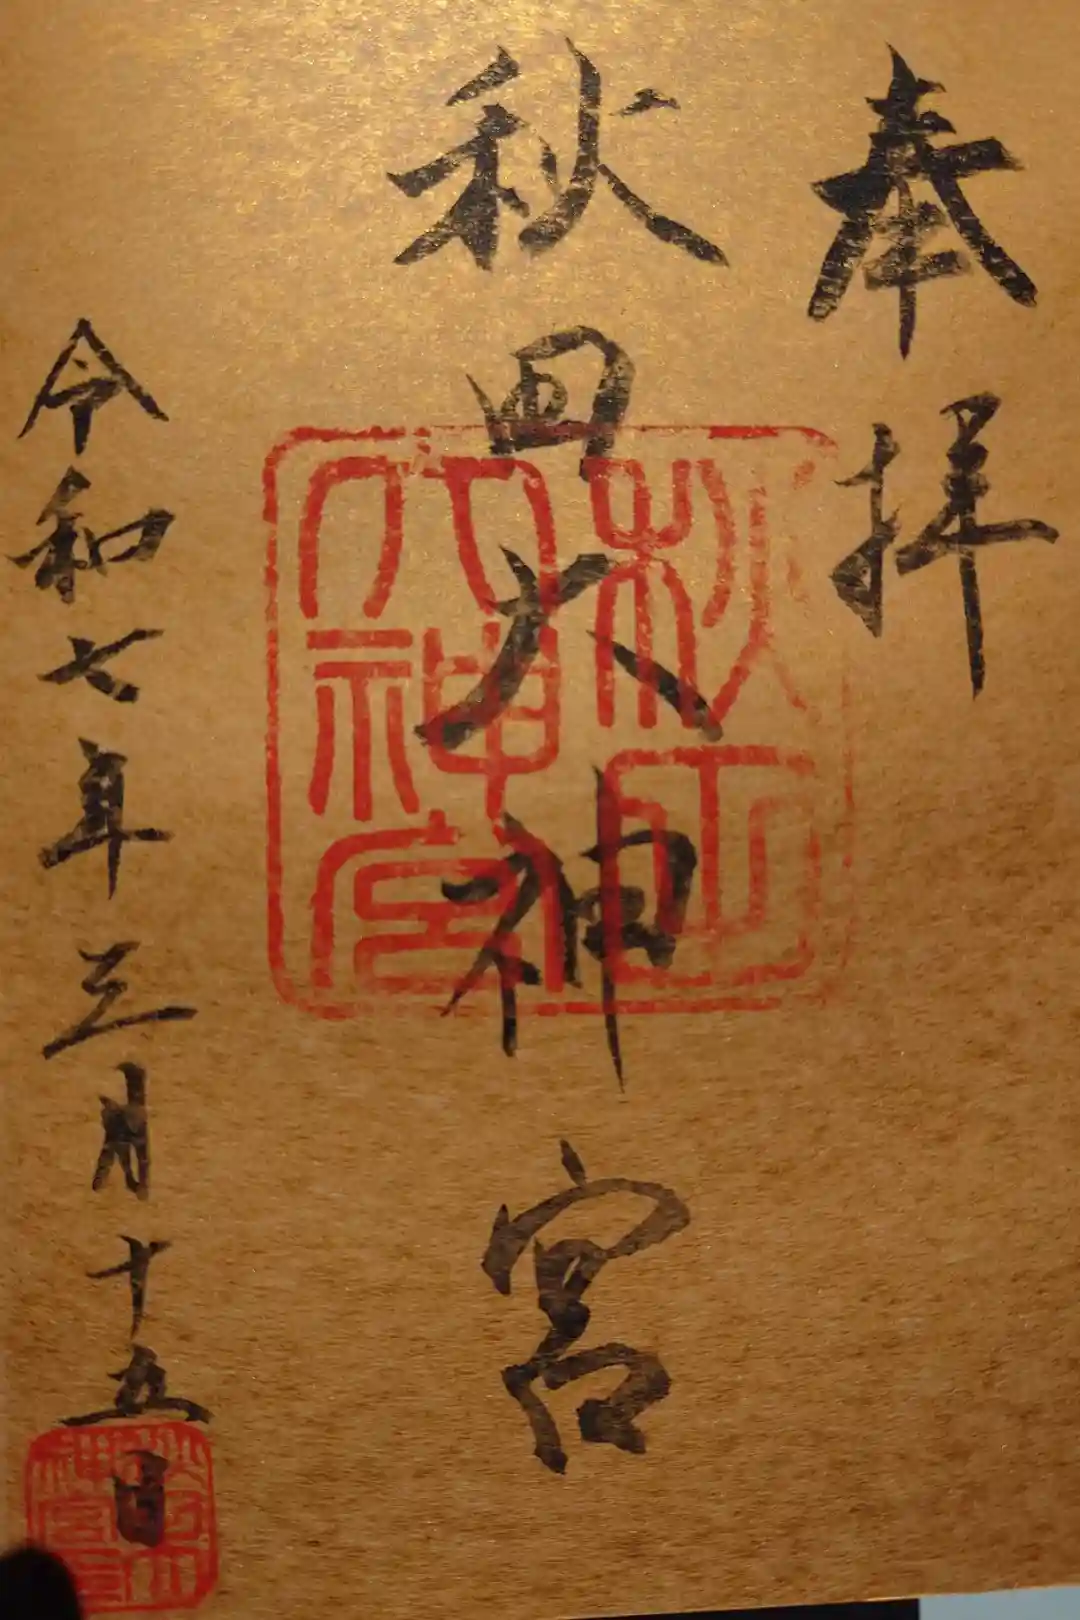 奉拝
秋田大神宮
令和七年三月十五日
秋田
大神宮